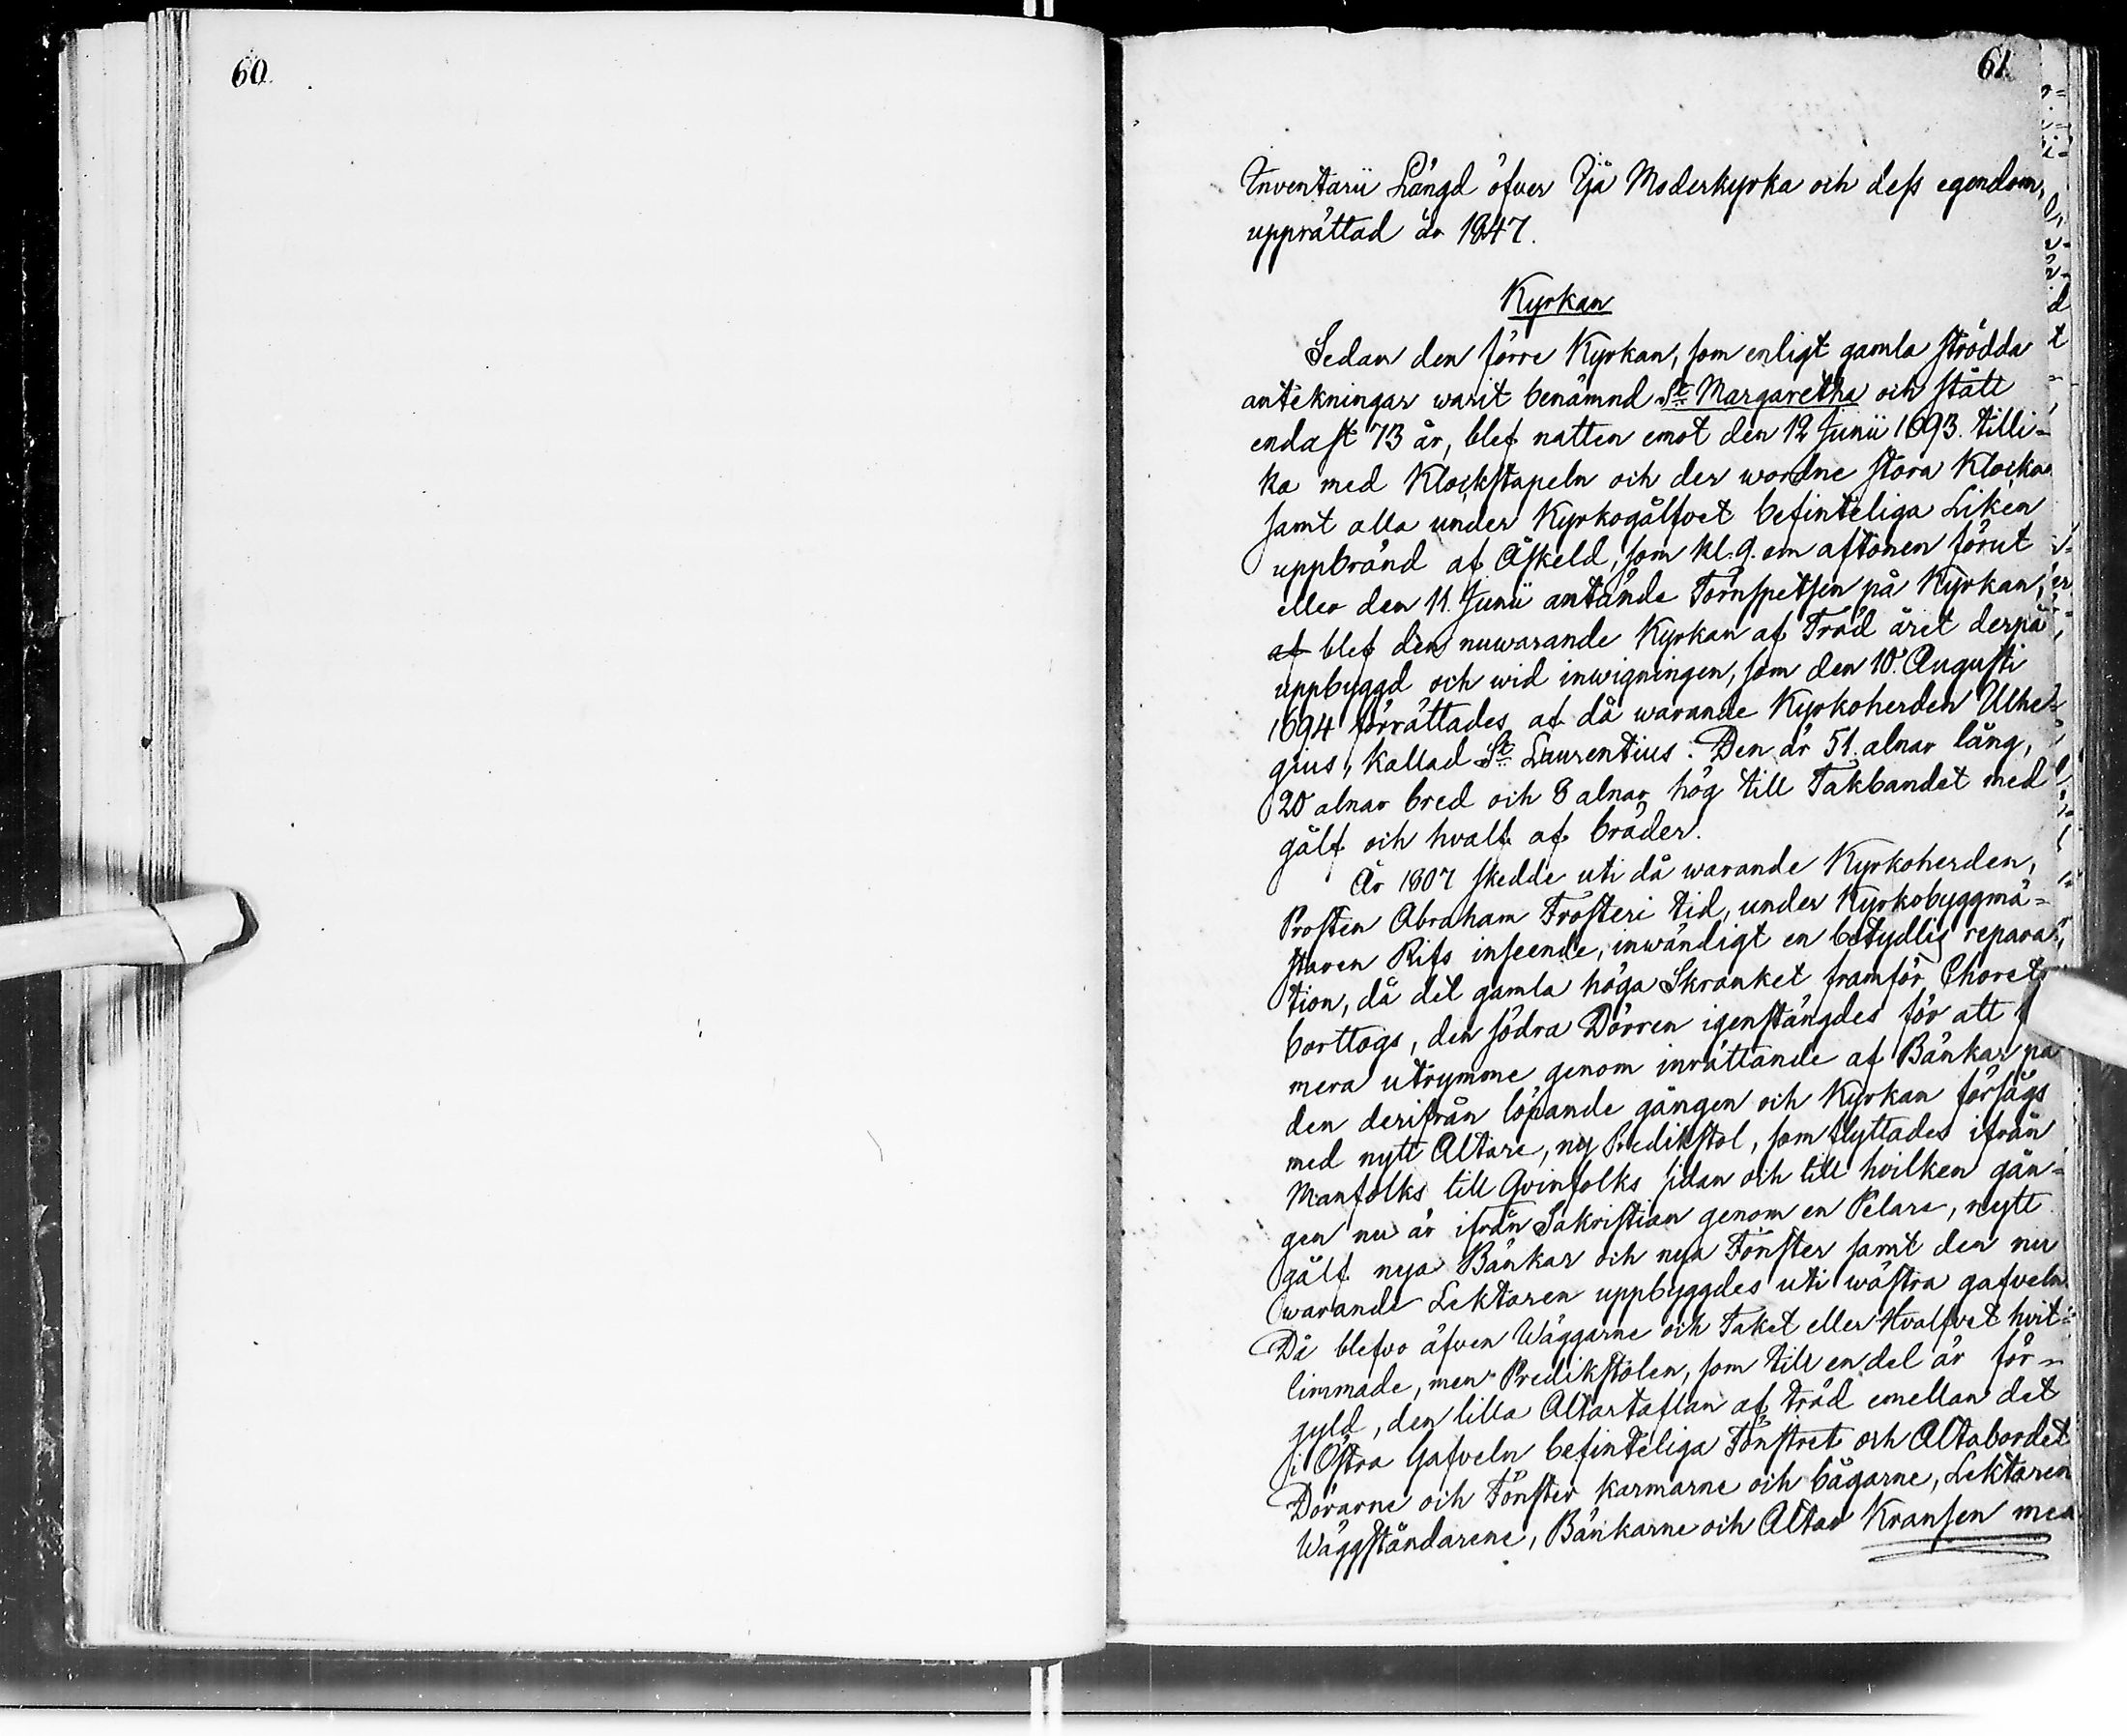 60.
61.
Inventarii Längd öfver Ijå Moderkyrka och dess egendom,
upprättad år 1847.
Kyrkan
Sedan den förre Kyrkan, som enligt gamla strödda
anteckningar warit benämnd St Margaretha och stått
endast 73 år, blef natten emot den 12 Junii 1693. tilli-
ka med Klockstapeln och der wordne stora Klockan
samt alla under Kyrkogålfvet befinteliga Liken
uppbränd af Åskeld, som kl. 9. om aftonen förut
eller den 11. Junii antände Tornspetsen på Kyrkan,
af blef den nuwarande Kyrkan af Träd året derpå
uppbyggd och wid inwigningen, som den 10. Augusti
1694 förrättades af då warande Kyrkoherden Ulhe-
gius, kallad St Laurentius. Den är 51. alnar lång,
20 alnar bred och 8 alnar hög till Takbandet med
gålf och hvalf af bräder.
År 1807 skedde uti då warande Kyrkoherden,
Prosten Abraham Frosteri tid, under Kyrkobyggmä-
staren Rifs inseende, inwändigt en betydlig repara-
tion, då det gamla höga Skranket framför Choret
borttogs, den södra Dörren igenstängdes för att
mera utrymme genom inrättande af Bänkar på
den derifrån löpande gången och Kyrkan försågs
med nytt Altare, ny Predikstol, som flyttades ifrån
Manfolks till Qvinfolks sidan och till hvilken gån-
gen nu är ifrån Sakristian genom en Pelare, nytt
gålf nya Bänkar och nya Fönster samt den nu
warande Lektaren uppbyggdes uti wästra gafveln.
Då blefvo äfven Wäggarne och Taket eller Hvalfvet hvit-
limmade, men Predikstolen, som till en del är för-
gyld, den lilla Altartaflan af träd emellan det
i Östra Gafveln befinteliga Fönstret och Altabordet
Dörarne och Fönster karmarne och bågarne, Lektaren
Wäggständarene, Bänkarne och Altar Kransen med